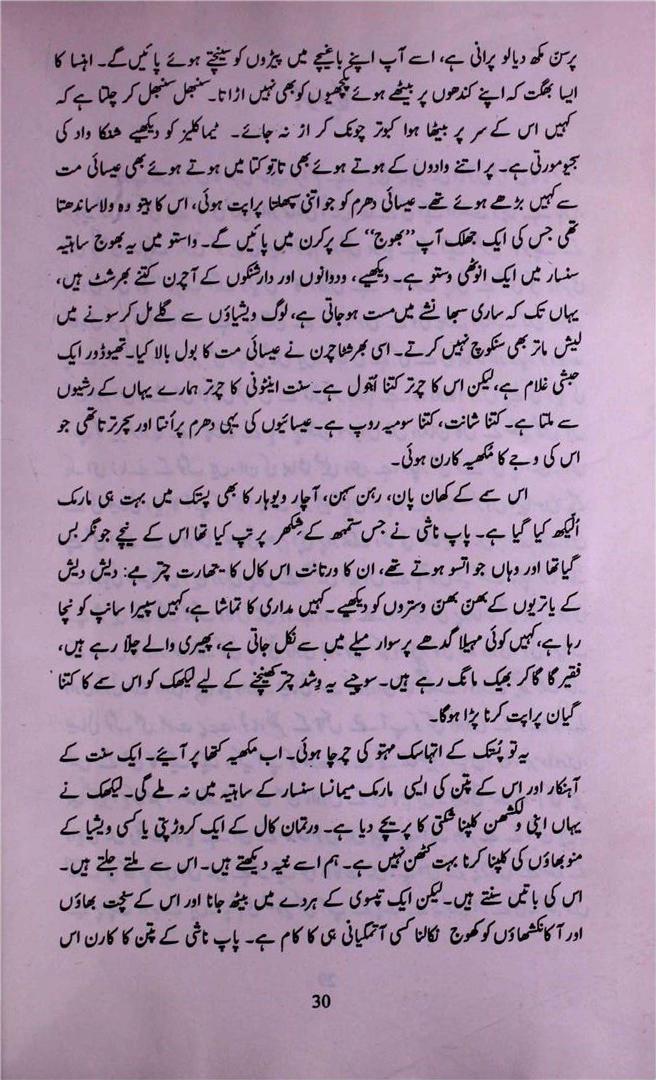 پرسن مکھ دیالو پرانی ہے، اسے آپ اپنے باغیچے میں پیڑوں کو سینچتے ہوئے پائیں گے۔ اہنسا کا
ایسا بھگت کہ اپنے کندھوں پر بیٹھے ہوئے پنچھیوں کو بھی نہیں اڑاتا۔ سنبھل سنبھل کر چلتا ہے کہ
کہیں اس کے سر پر بیٹھا ہوا کبوتر چونک کر اڑ نہ جائے۔ ٹیماکلیز کو دیکھیے شنکا واد کی
سجیو مورتی ہے۔ پر اتنے وادوں کے ہوتے ہوئے بھی تاتو کتا میں ہوتے ہوئے بھی عیسائی مت
سے کہیں بڑھے ہوئے تھے۔ عیسائی دھرم کو جو اتنی سپھلتا پراپت ہوئی، اس کا ہیتو وہ ولاساندھتا
تھی جس کی ایک جھلک آپ ”بھوج“ کے پرکرن میں پائیں گے۔ واستو میں یہ بھوج ساہتیہ
سنسار میں ایک انوٹھی وستو ہے۔ دیکھیے، ودوانوں اور دارشنکوں کے آچرن کتنے بھرشٹ ہیں،
یہاں تک کہ ساری سبھا نشے میں مست ہوجاتی ہے، لوگ ویشیاؤں سے گلے مل کر سونے میں
لیش ماتر بھی سنکوچ نہیں کرتے۔ اسی بھرشٹاچرن نے عیسائی مت کا بول بالا کیا۔ تھیوڈور ایک
حبشی غلام ہے، لیکن اس کا چرتر کتنا اُجول ہے۔ سنت اینٹونی کا چرتر ہمارے یہاں کے رشیوں
سے ملتا ہے۔ کتنا شانت، کتنا سومیہ روپ ہے۔ عیسائیوں کی یہی دھرم پرائنتا اور سچرترتا تھی جو
اس کی وجے کا مُکھیہ کارن ہوئی۔
اس سمے کے کھان پان، رہن سہن، آچار ویوہار کا بھی پستک میں بہت ہی مارمک
اُلیکھ کیا گیا ہے۔ پاپ ناشی نے جس ستمبھ کے شِکھر پر تپ کیا تھا اس کے نیچے جو نگر بس
گیا تھا اور وہاں جو اتسو ہوتے تھے، ان کا ورتانت اس کال کا یتھارت چتر ہے: دیش دیش
کے یاتریوں کے بھِن بھِن وستروں کو دیکھیے۔ کہیں مداری کا تماشا ہے، کہیں سپیرا سانپ کو نچا
رہا ہے، کہیں کوئی مہیلا گدھے پر سوار میلے میں سے نکل جاتی ہے، پھیری والے چلا رہے ہیں،
فقیر گا گاکر بھیک مانگ رہے ہیں۔ سوچیے یہ وِشد چتر کھینچنے کے لیے لیکھک کو اس سمے کا کتنا
گیان پراپت کرنا پڑا ہوگا۔
یہ تو پُستک کے اتہاسک مہتو کی چرچا ہوئی۔ اب مکھیہ کتھا پر آیئے۔ ایک سنت کے
آہنکار اور اس کے پتن کی ایسی مارمک میمانسا سنسار کے ساہتیہ میں نہ ملے گی۔ لیکھک نے
یہاں اپنی وِلکشھن کلپنا شکتی کا پریچے دیا ہے۔ ورتمان کال کے ایک کروڑپتی یا کسی ویشیا کے
منوبھاؤں کی کلپنا کرنا بہت کٹھن نہیں ہے۔ ہم اسے نتیہ دیکھتے ہیں۔ اس سے ملتے جلتے ہیں۔
اس کی باتیں سنتے ہیں۔ لیکن ایک تپسوی کے ہردے میں بیٹھ جانا اور اس کے سنچت بھاؤں
اور آکانکشھاؤں کو کھوج نکالنا کسی آتمگیانی ہی کا کام ہے۔ پاپ ناشی کے پتن کا کارن اس
30